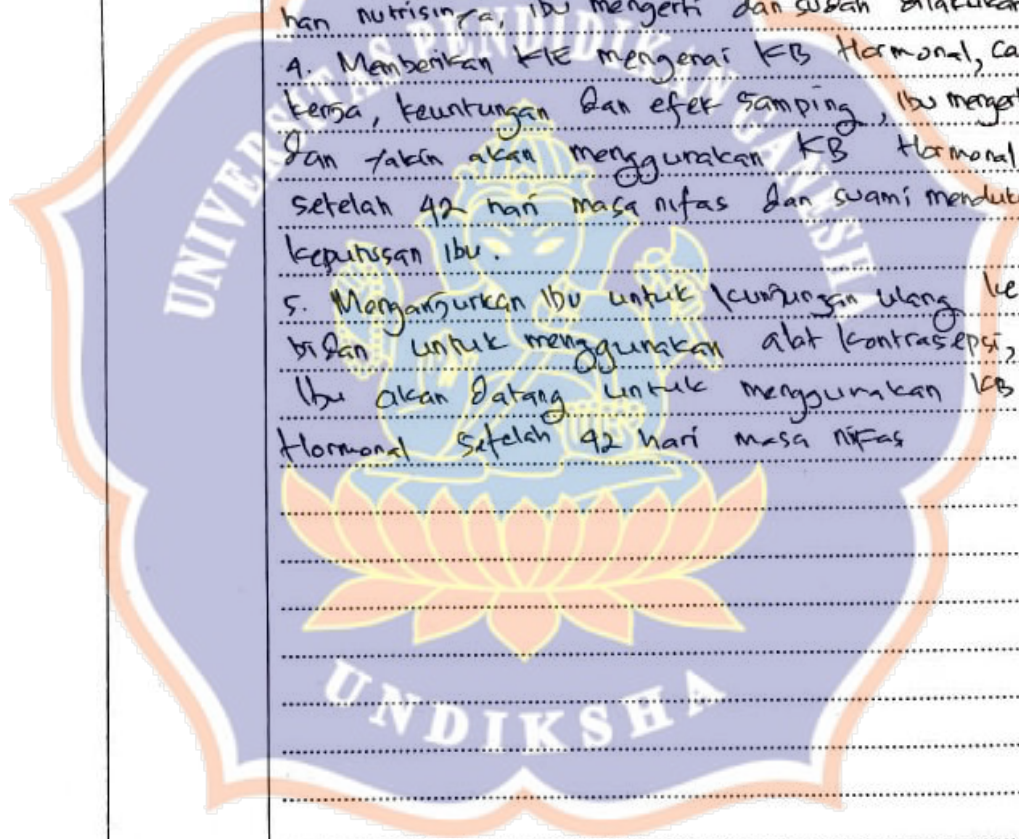 han nutrisinya, ibu mengerti dan sudah dilakukan
4. Memberikan KIE mengenai KB Hormonal, ca
kerja, keuntungan dan efek samping, ibu mengerti
dan yakin akan menggunakan KB Hormonal
setelah 42 hari masa nifas dan suami menduku
keputusan ibu.
5. Menganjurkan ibu untuk kunjungan ulang ke
bidan untuk menggunakan alat kontrasepsi,
Ibu akan datang untuk menggunakan KB
Hormonal setelah 42 hari masa nifas
UNIVERSITAS PENDIDIKAN GANESHA
UNDIKSHA